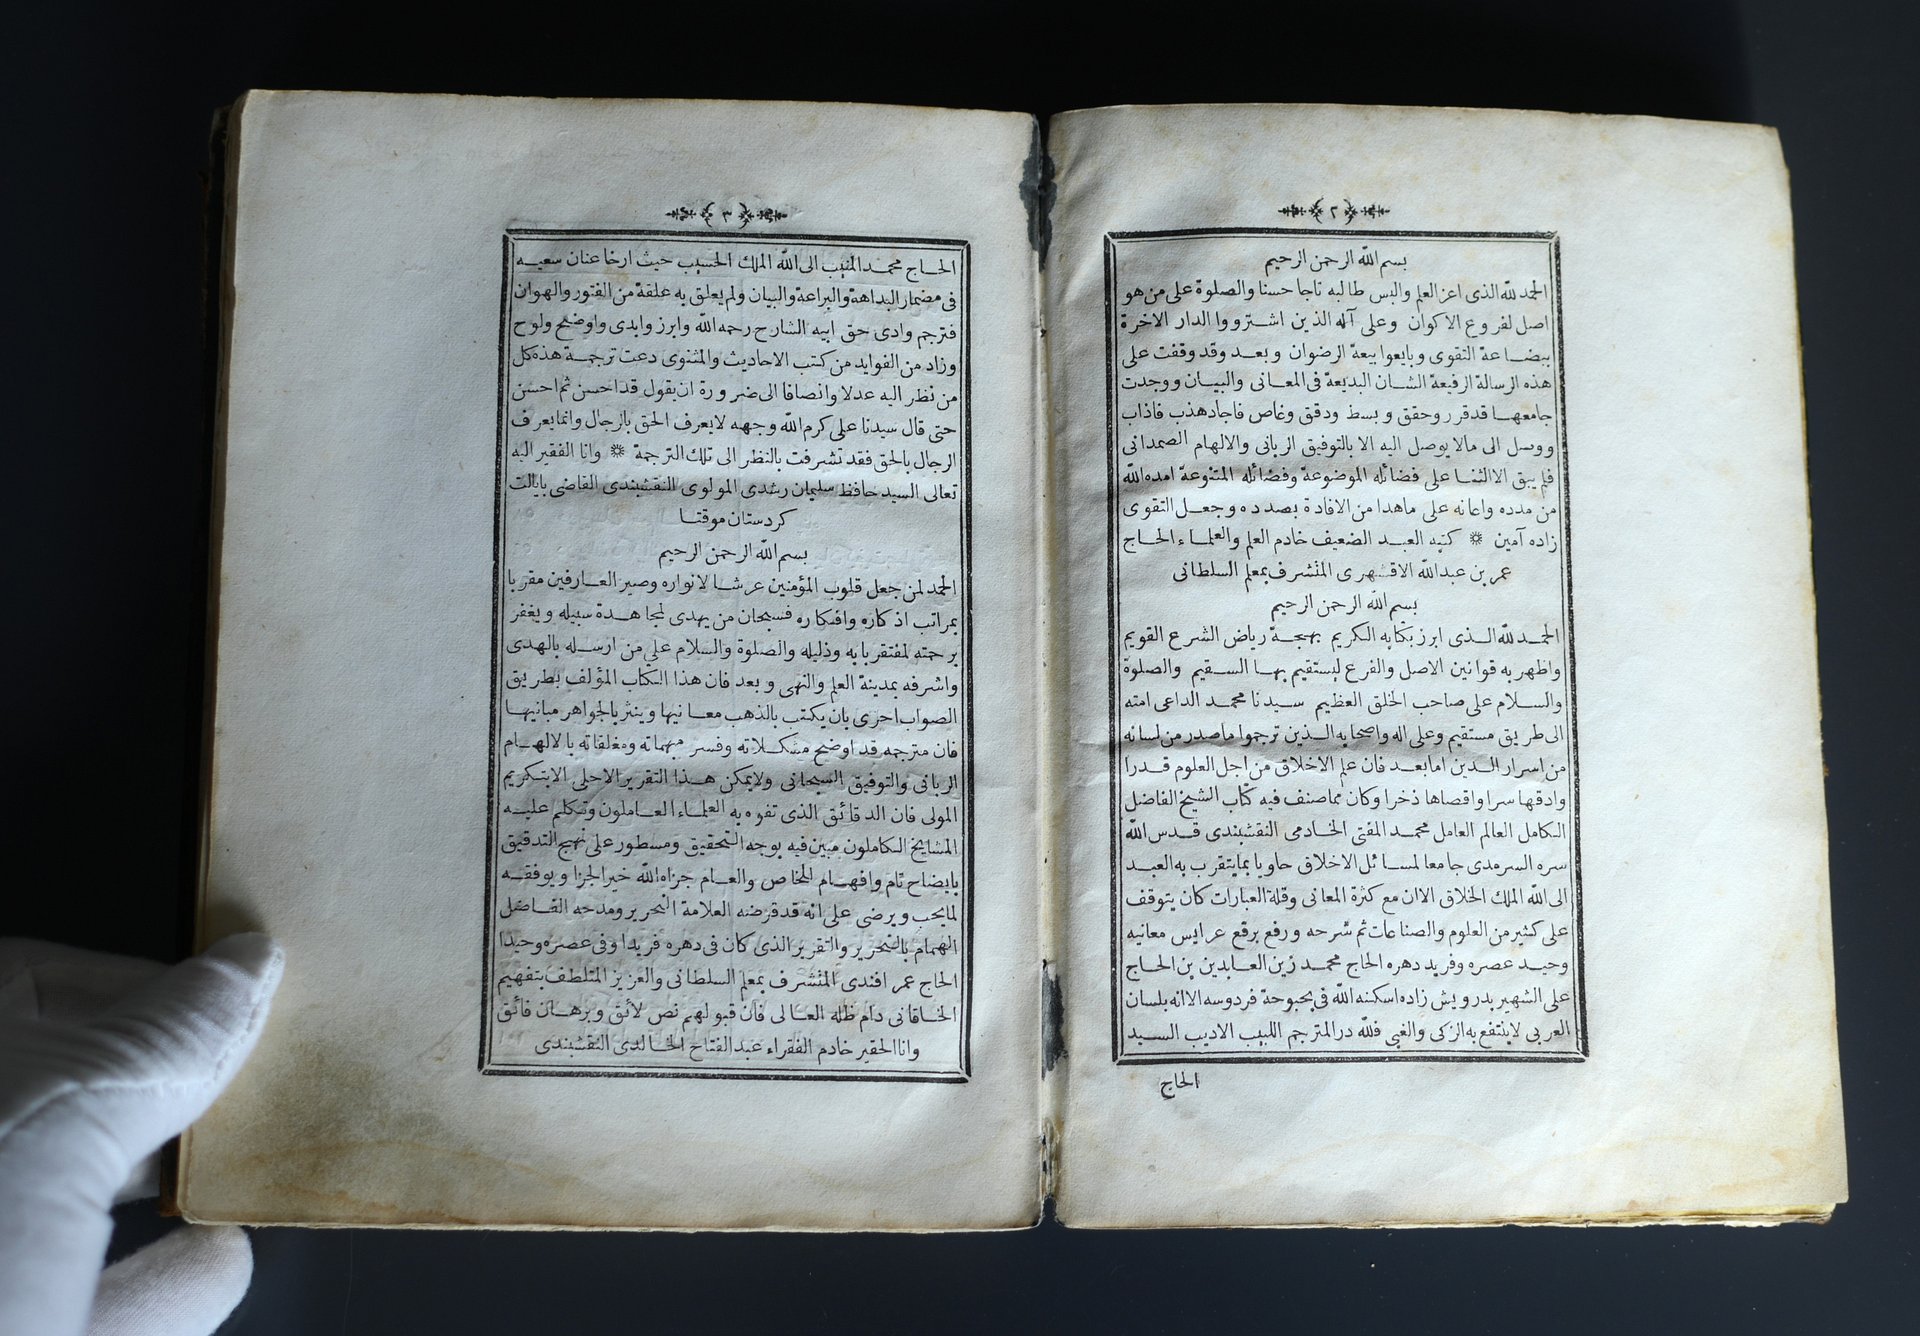 ٢
بسم الله الرحمن الرحيم
الحمد لله الذى اعز العلم والبس طالبه تاجا حسنا والصلوة على من هو
اصل لفروع الاكوان وعلى آله الذين اشتروا الدار الاخرة
ببضاعة التقوى وبايعوا بيعة الرضوان وبعد وقد وقفت على
هذه الرسالة الرفيعة الشان البديعة فى المعانى والبيان ووجدت
جامعها قد قرر وحقق وبسط ودقق وغاص فاجاد هذب فاذاب
ووصل الى مالا يوصل اليه الا بالتوفيق الربانى والالهام الصمدانى
فلم يبق الا الثنا على فضائله الموضوعة وفضائله المتنوعة امده الله
من مدده واعانه على ماهدا من الافادة بصدده وجعل التقوى
زاده آمين ۞ كتبه العبد الضعيف خادم العلم والعلماء الحاج
عمر بن عبدالله الاقشهرى المتشرف بمعلم السلطانى
بسم الله الرحمن الرحيم
الحمد لله الذى ابرز بكتابه الكريم بهجة رياض الشرع القويم
واظهر به قوانين الاصل والفرع ليستقيم بها السقيم والصلوة
والسلام على صاحب الخلق العظيم سيدنا محمد الداعى امته
الى طريق مستقيم وعلى اله واصحابه الذين ترجموا ماصدر من لسانه
من اسرار الدين اما بعد فان علم الاخلاق من اجل العلوم قدرا
وادقها سرا واقصاها ذخرا وكان مما صنف فيه كتاب الشيخ الفاضل
الكامل العالم العامل محمد المفتى الخادمى النقشبندى قدس الله
سره السرمدى جامعا لمسائل الاخلاق حاويا بما يتقرب به العبد
الى الله الملك الخلاق الا ان مع كثرة المعانى وقلة العبارات كان يتوقف
على كثير من العلوم والصناعات ثم شرحه ورفع برقع عرايس معانيه
وحيد عصره وفريد دهره الحاج محمد زين العابدين بن الحاج
على الشهير بدرويش زاده اسكنه الله فى بحبوحة فردوسه الا انه بلسان
العربى لاينتفع به الزكى والغبى فلله در المترجم اللبيب الاديب السيد
الحاج
٣
الحاج محمد المنيب الى الله الملك الحسيب حيث ارخا عنان سعيه
فى مضمار البداهة والبراعة والبيان ولم يعلق به علقة من الفتور والهوان
فترجم وادى حق ابيه الشارح رحمه الله وابرز وابدى واوضح ولوح
وزاد من الفوايد من كتب الاحاديث والمثنوى دعت ترجمة هذه كل
من نظر اليه عدلا وانصافا الى ضرورة ان يقول قد احسن ثم احسن
حتى قال سيدنا على كرم الله وجهه لا يعرف الحق بالرجال وانما يعرف
الرجال بالحق فقد تشرفت بالنظر الى تلك الترجمة ۞ وانا الفقير اليه
تعالى السيد حافظ سليمان رشدى المولوى النقشبندى القاضى بايالت
كردستان موقتا
بسم الله الرحمن الرحيم
الحمد لمن جعل قلوب المؤمنين عرشا لانواره وصير العارفين مقربا
بمراتب اذكاره وافكاره فسبحان من يهدى لمجاهدة سبيله ويغفر
برحمته لمفتقر بابه وذليله والصلوة والسلام على من ارسله بالهدى
واشرفه بمدينة العلم والنهى وبعد فان هذا الكتاب المؤلف بطريق
الصواب احرى بان يكتب بالذهب معانيها وينثر بالجواهر مبانيها
فان مترجمه قد اوضح مشكلاته وفسر مبهماته ومغلقاته بالالهام
الربانى والتوفيق السبحانى ولايمكن هذا التقرير الاحلى الا بتكريم
المولى فان الدقائق الذى تفوه به العلماء العاملون وتكلم عليه
المشايخ الكاملون مبين فيه بوجه التحقيق ومسطور على نهج التدقيق
بايضاح تام وافهام للخاص والعام جزاه الله خير الجزا ويوفقه
لما يحب ويرضى على انه قد قرضه العلامة النحرير ومدحه الفاضل
الهمام بالتحرير والتقرير الذى كان فى دهره فريدا وفى عصره وحيدا
الحاج عمر افندى المتشرف بمعلم السلطانى والعزيز المتلطف بتفهيم
الخاقانى دام ظله العالى فان قبولهم نص لائق وبرهان فائق
وانا الحقير خادم الفقراء عبد الفتاح الخالدى النقشبندى